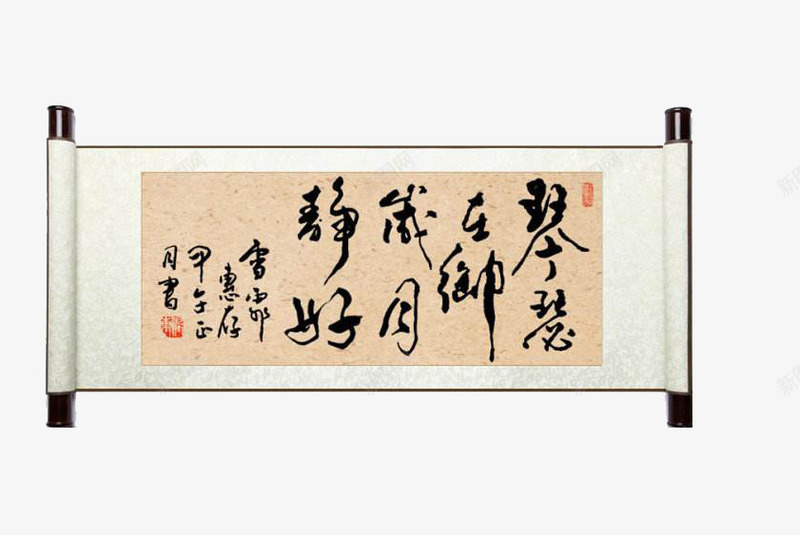 琴瑟
在御
歲月
靜好
雪霏
惠存
甲午正
月書